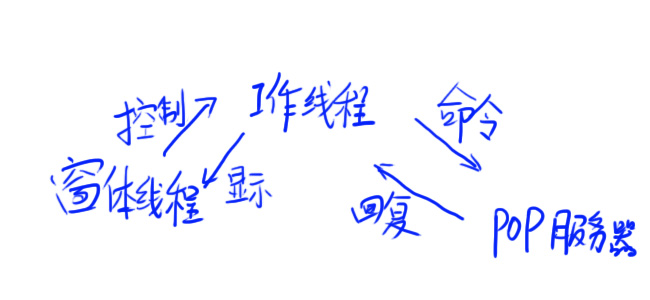 控制 工作线程 命令
窗体线程 显示 回复 POP服务器